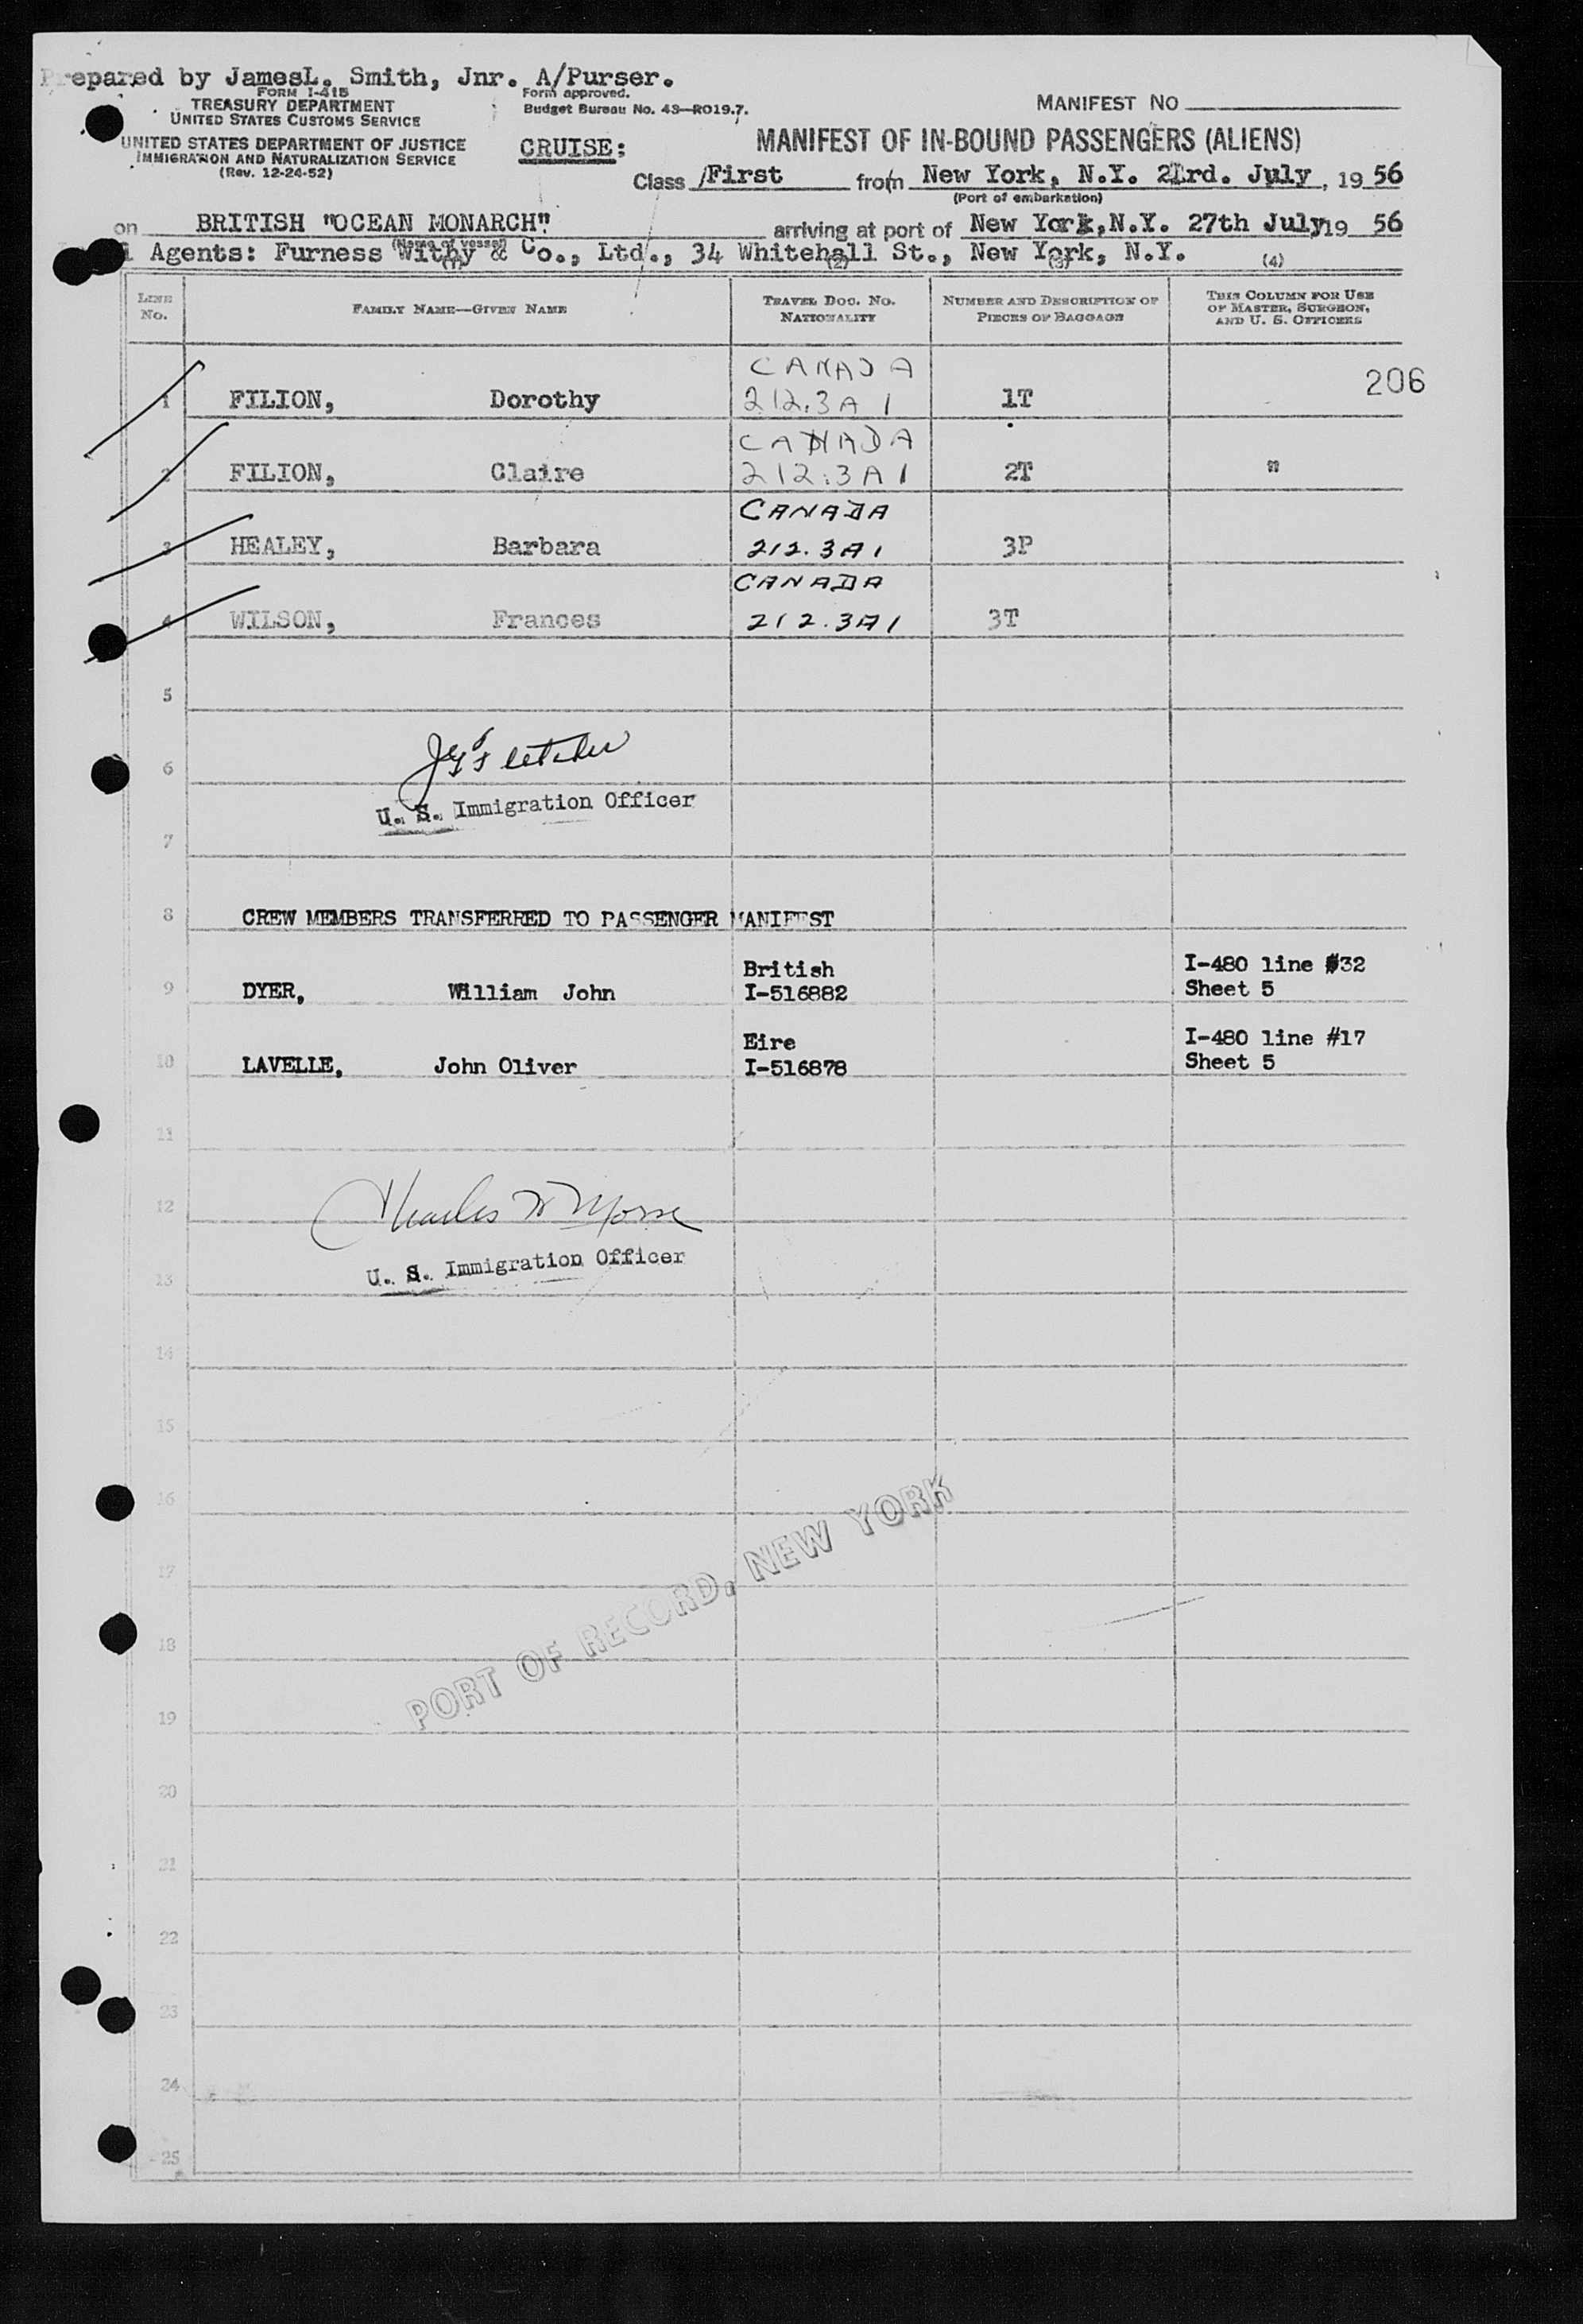 Prepared by JamesL. Smith, Jnr. A/Purser.
FORM I-415
TREASURY DEPARTMENT
UNITED STATES CUSTOMS SERVICE
Form approved.
Budget Bureau No. 43—RO19.7.
MANIFEST NO
UNITED STATES DEPARTMENT OF JUSTICE
IMMIGRATION AND NATURALIZATION SERVICE
(Rev. 12-24-52)
CRUISE:
MANIFEST OF IN-BOUND PASSENGERS (ALIENS)
Class First from New York, N.Y. July, 19 56
(Port of embarkation)
on BRITISH "OCEAN MONARCH" arriving at port of New York, N.Y. 27th July 19 56
(Name of vessel)
Agents: Furness Withy & Co., Ltd., 34 Whitehall St., New York, N.Y.
(1) (2) (3) (4)
LINE NO.
FAMILY NAME—GIVEN NAME
TRAVEL DOC. NO. NATIONALITY
NUMBER AND DESCRIPTION OF PIECES OF BAGGAGE
THIS COLUMN FOR USE OF MASTER, SURGEON, AND U. S. OFFICERS
CANADA
1 FILION, Dorothy 212.3A1 1T 206
CANADA
2 FILION, Claire 212.3A1 2T "
CANADA
3 HEALEY, Barbara 212.3A1 3P
CANADA
4 WILSON, Frances 212.3A1 3T
5
6 Fletcher
U. S. Immigration Officer
7
8 CREW MEMBERS TRANSFERRED TO PASSENGER MANIFEST
British I-480 line #32
9 DYER, William John I-516882 Sheet 5
Eire I-480 line #17
10 LAVELLE, John Oliver I-516878 Sheet 5
11
12 Charles W Morse
U. S. Immigration Officer
13
14
15
16
17
18
PORT OF RECORD, NEW YORK
19
20
21
22
23
24
25